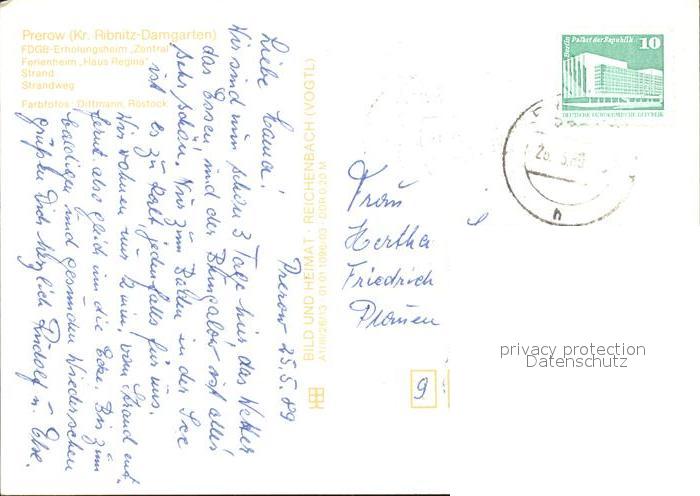 Prerow (Kr. Ribnitz-Damgarten)
FDGB-Erholungsheim „Zentral“
Ferienheim „Haus Regina“
Strand
Strandweg
Farbfotos: Dittmann, Rostock
BILD UND HEIMAT · REICHENBACH (VOGTL)
A1/86/26/13 01 01 1096/03 · DDR 0,20 M
Prerow 25.5.89
Liebe
Wir sind nun schon 3 Tage hier, das Wetter
das Essen und der Bungalow ist alles
sehr schön. Nur zum Baden in der See
ist es zu kalt, jedenfalls für uns.
Wir wohnen nur 2 min. vom Strand ent-
fernt. also gleich um die Ecke. Bis zum
baldigen und gesunden Wiedersehen
grüßen Dich herzlich Rudolf u. Else.
Berlin, Palast der Republik
10
DEUTSCHE DEMOKRATISCHE REPUBLIK
Frau
Hertha
Friedrich
Plauen
9
privacy protection
Datenschutz